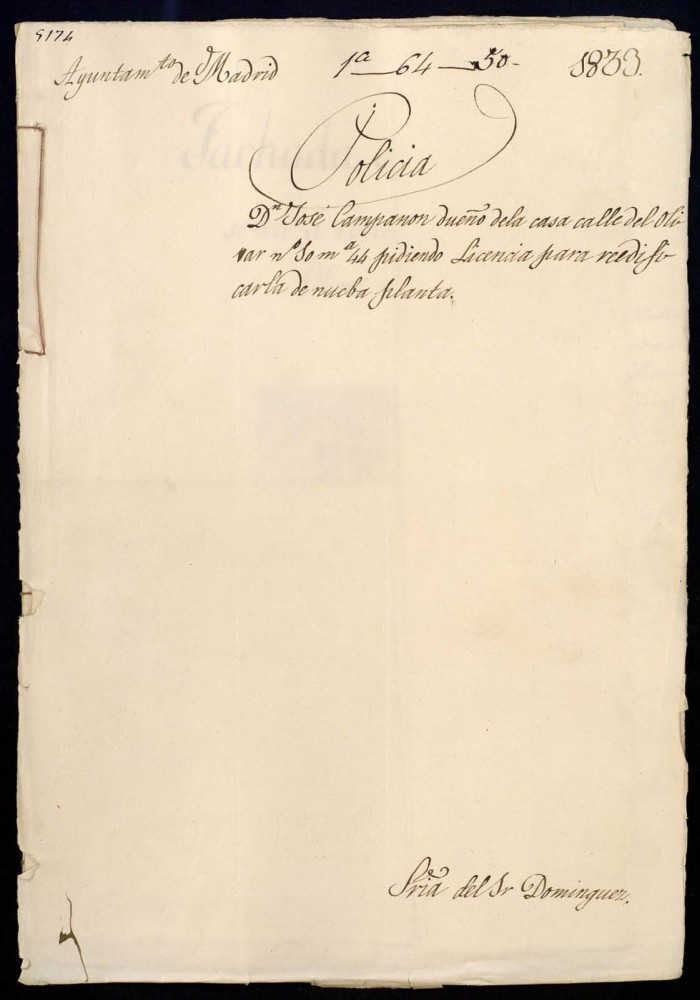 5174
Ayuntam.to de Madrid 1a — 64 — 50 - 1833.
Policia
Dn. José Campanon dueño dela casa calle del Oli
var nº 10 m.a 44 pidiendo Licencia para reedifi
carla de nueba planta.
Sria del Sr Dominguez.